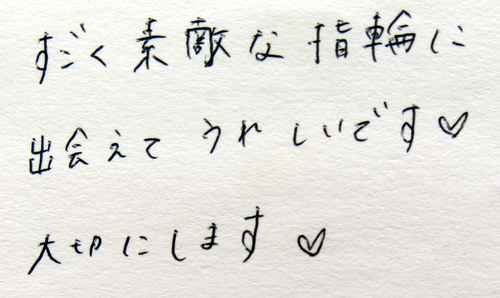 すごく素敵な指輪に
出会えてうれしいです♡
大切にします♡